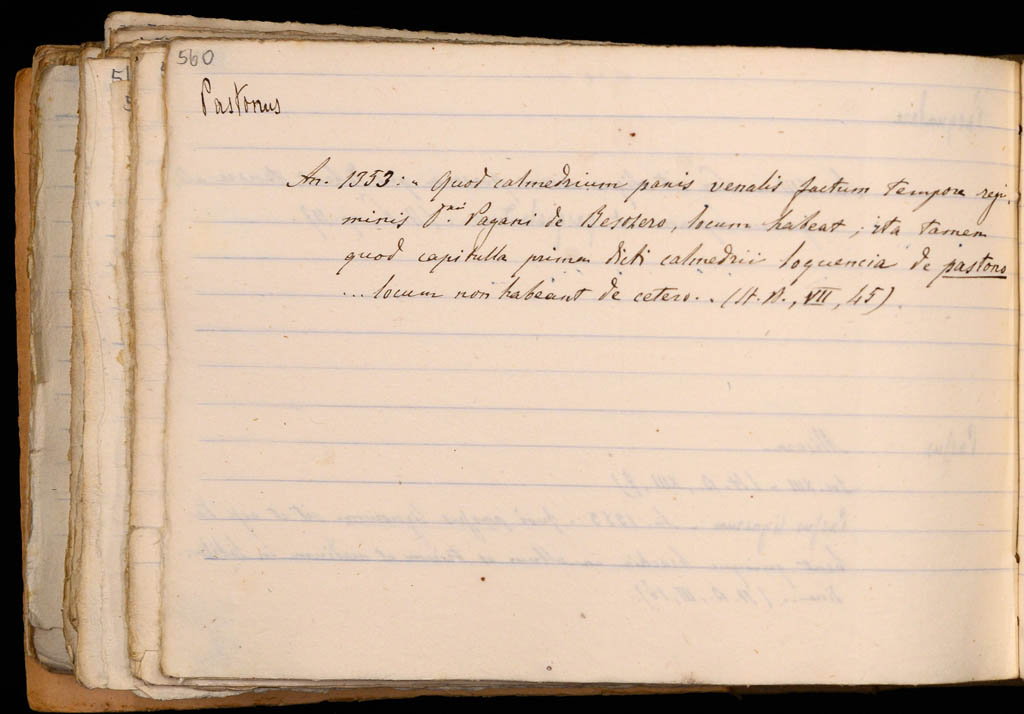 560
Pastonus
An. 1353: " Quod calmedrium panis venalis factum tempore regi,
minis D.ni Pagani de Besozero, locum habeat ; ita tamen
quod capitulla prima dicti calmedrii loquencia de pastono
... locum non habeant de cetero.. (St. A., VII, 45)